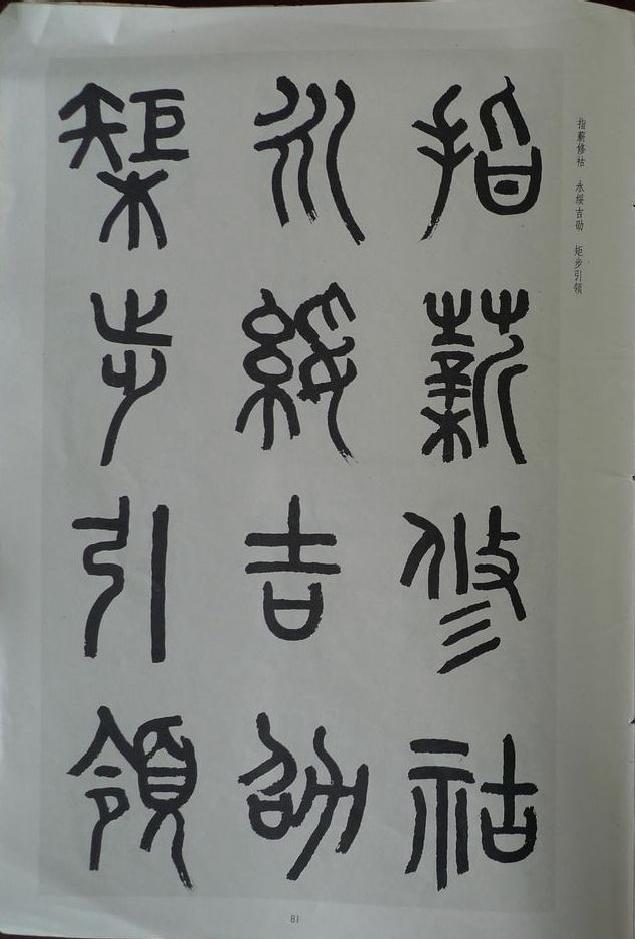 指薪修祜
永綏吉劭
矩步引領
指薪修祜 永綏吉劭 矩步引領
81